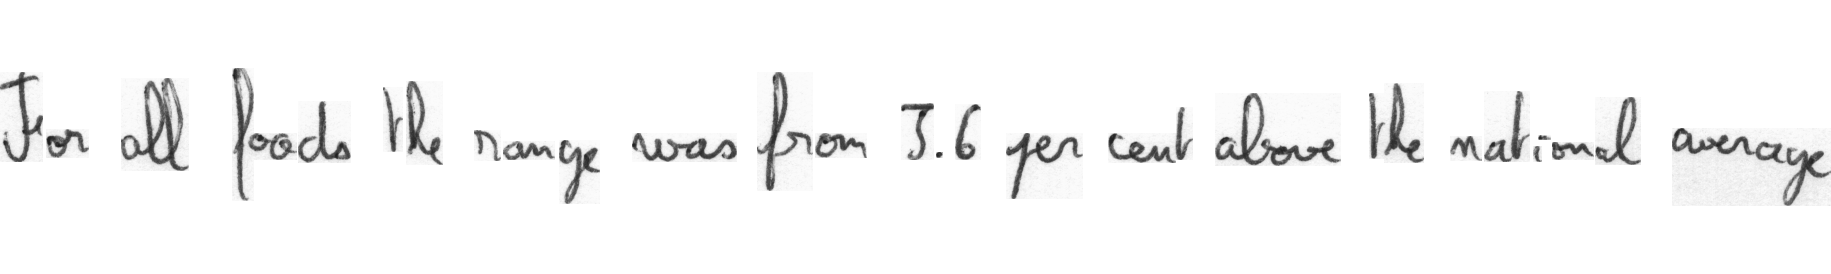 For all foods the range was from 3.6 per cent above the national average